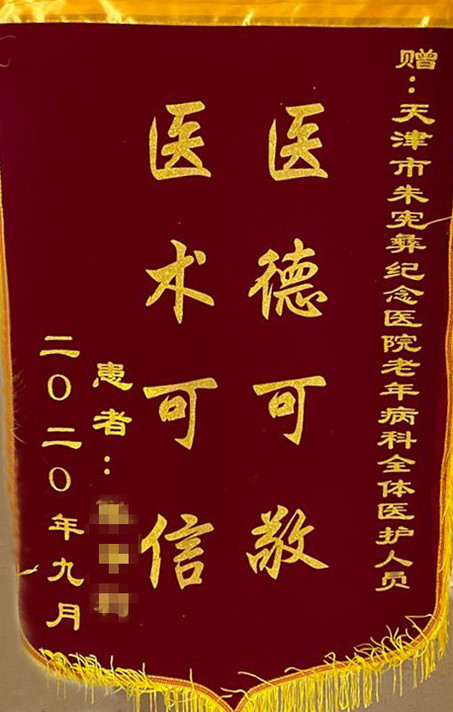 赠：天津市朱宪彝纪念医院老年病科全体医护人员
医德可敬
医术可信
患者：
二〇二〇年九月